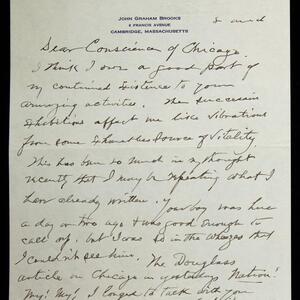 JOHN GRAHAM BROOKS
8 FRANCIS AVENUE
CAMBRIDGE, MASSACHUSETTS
Dear Conscience of Chicago,
I think I owe a good part of
my continued existence to your
amazing activities. The successive
exhibitions affect me like vibrations
from some exhaustless source of vitality.
This has been so much in my thought
recently that I may be repeating what I
have already written. your boy was here
a day or two ago & was good enough to
call up, but I was so in the
I couldn't see him. The Douglass
article on Chicago in yesterdays Nation!
My! My! I longed to talk with you